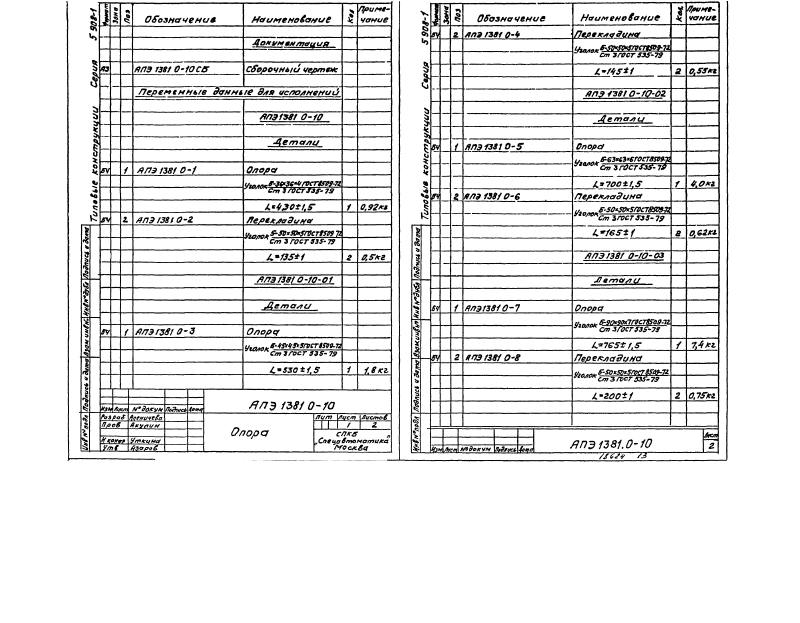 Типовые конструкции Серия 5 908-1
Формат Зона Поз Обозначение Наименование Кол Примечание
Документация
А3 АПЭ 1381 0-10СБ Сборочный чертеж
Переменные данные для исполнений
АПЭ 1381 0-10
Детали
БЧ 1 АПЭ 1381 0-1 Опора
Уголок Б-36×36×4 ГОСТ 8509-72
Ст 3 ГОСТ 535-79
L=430±1,5 1 0,92кг
БЧ 2 АПЭ 1381 0-2 Перекладина
Уголок Б-50×50×5 ГОСТ 8509-72
Ст 3 ГОСТ 535-79
L=135±1 2 0,5кг
АПЭ 1381 0-10-01
Детали
БЧ 1 АПЭ 1381 0-3 Опора
Уголок Б-45×45×5 ГОСТ 8509-72
Ст 3 ГОСТ 535-79
L=530±1,5 1 1,8кг
Инв № подл Подпись и дата Взам инв № Инв № дубл Подпись и дата
АПЭ 1381 0-10
Изм Лист № докум Подпись Дата
Разраб
Пров Акулин
Н контр Уткина
Утв Азаров
Опора
Лит Лист Листов
1 2
СПКБ
„Спецавтоматика"
Москва
Типовые конструкции Серия 5 908-1
Формат Зона Поз Обозначение Наименование Кол Примечание
БЧ 2 АПЭ 1381 0-4 Перекладина
Уголок Б-50×50×5 ГОСТ 8509-72
Ст 3 ГОСТ 535-79
L=145±1 2 0,55кг
АПЭ 1381 0-10-02
Детали
БЧ 1 АПЭ 1381 0-5 Опора
Уголок Б-63×63×6 ГОСТ 8509-72
Ст 3 ГОСТ 535-79
L=700±1,5 1 4,0кг
БЧ 2 АПЭ 1381 0-6 Перекладина
Уголок Б-50×50×5 ГОСТ 8509-72
Ст 3 ГОСТ 535-79
L=165±1 2 0,62кг
АПЭ 1381 0-10-03
Детали
БЧ 1 АПЭ1381 0-7 Опора
Уголок Б-90×90×7 ГОСТ 8509-72
Ст 3 ГОСТ 535-79
L=765±1,5 1 7,4кг
БЧ 2 АПЭ 1381 0-8 Перекладина
Уголок Б-50×50×5 ГОСТ 8509-72
Ст 3 ГОСТ 535-79
L=200±1 2 0,75кг
Инв № подл Подпись и дата Взам инв № Инв № дубл Подпись и дата
Изм Лист № докум Подпись Дата
АПЭ 1381.0-10
Лист
2
13624 13